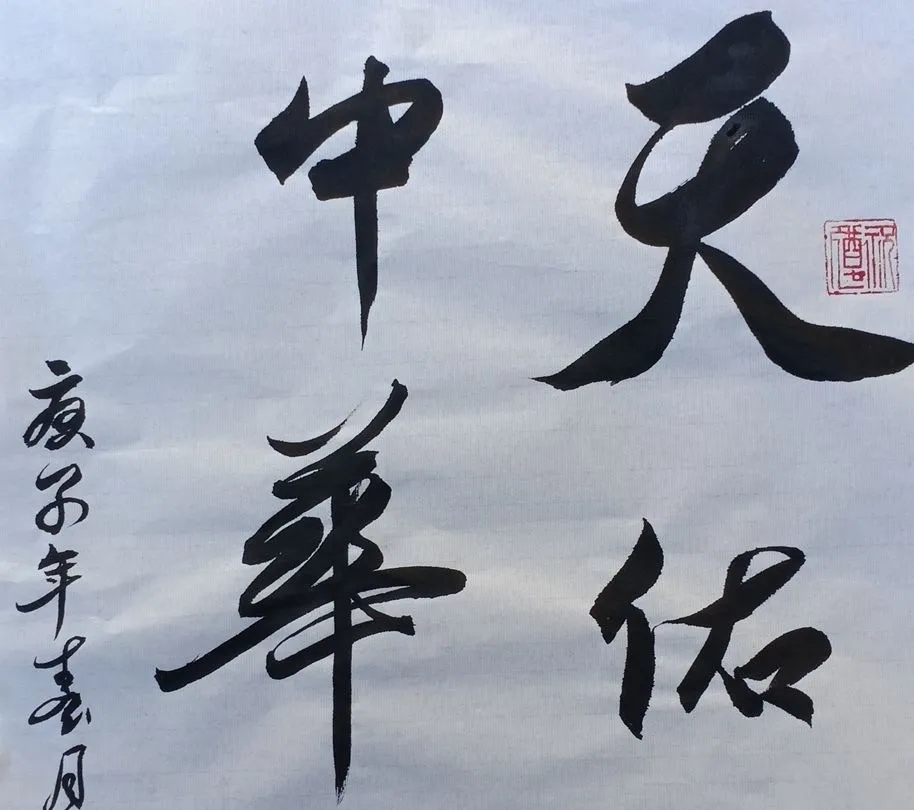 天佑
中華
庚子年春月